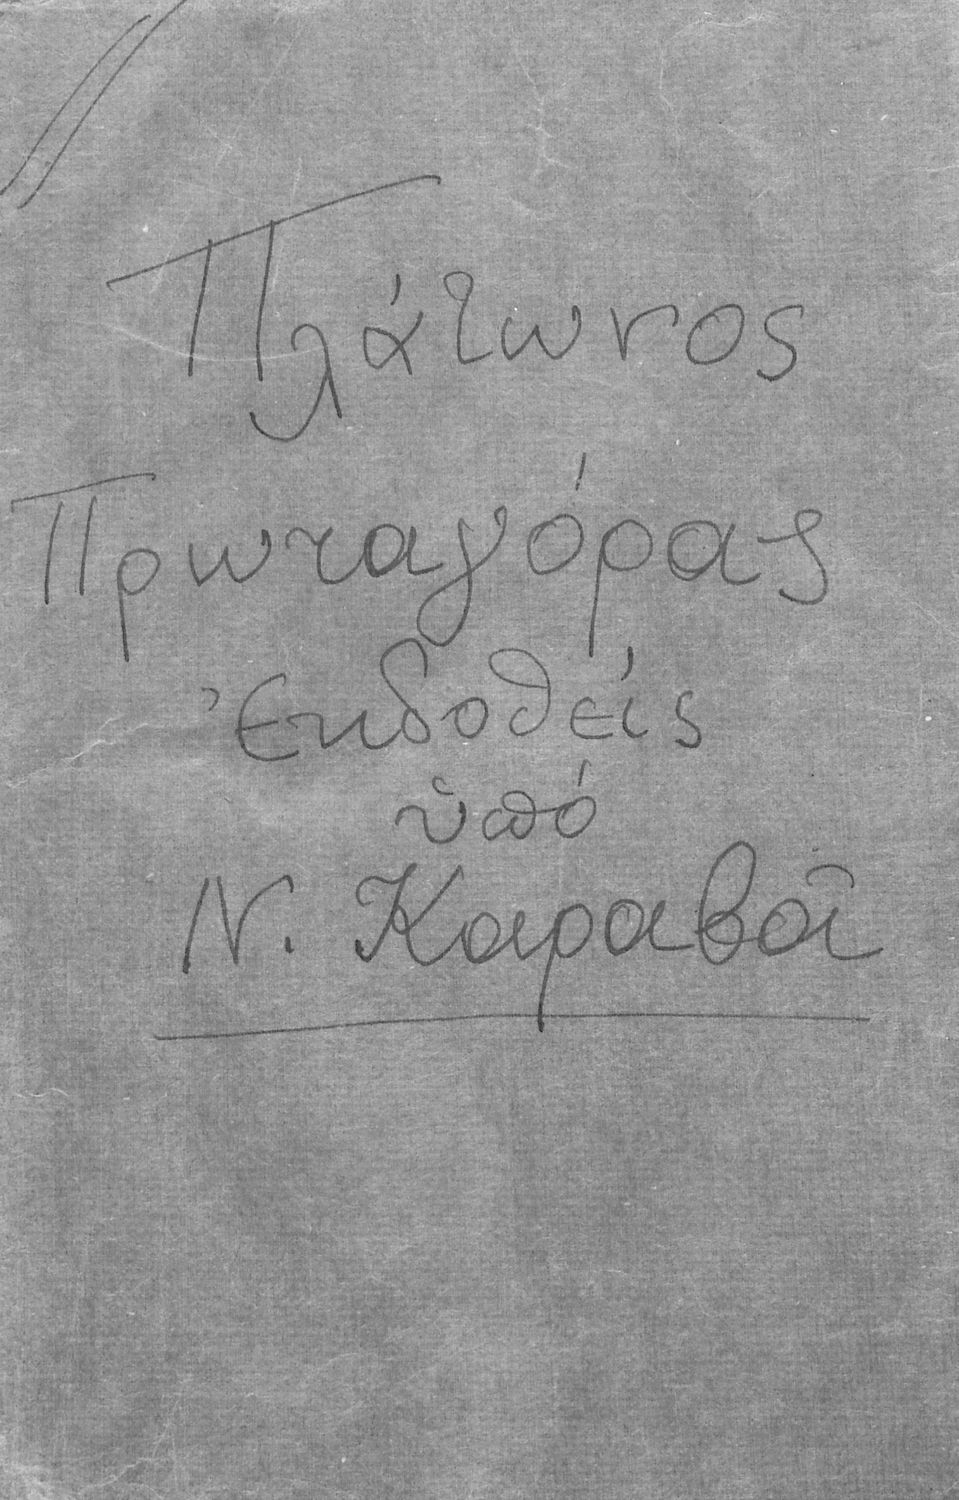 Πλάτωνος
Πρωταγόρας
Ἐκδοθείς
ὑπό
Ν. Καραβᾶ